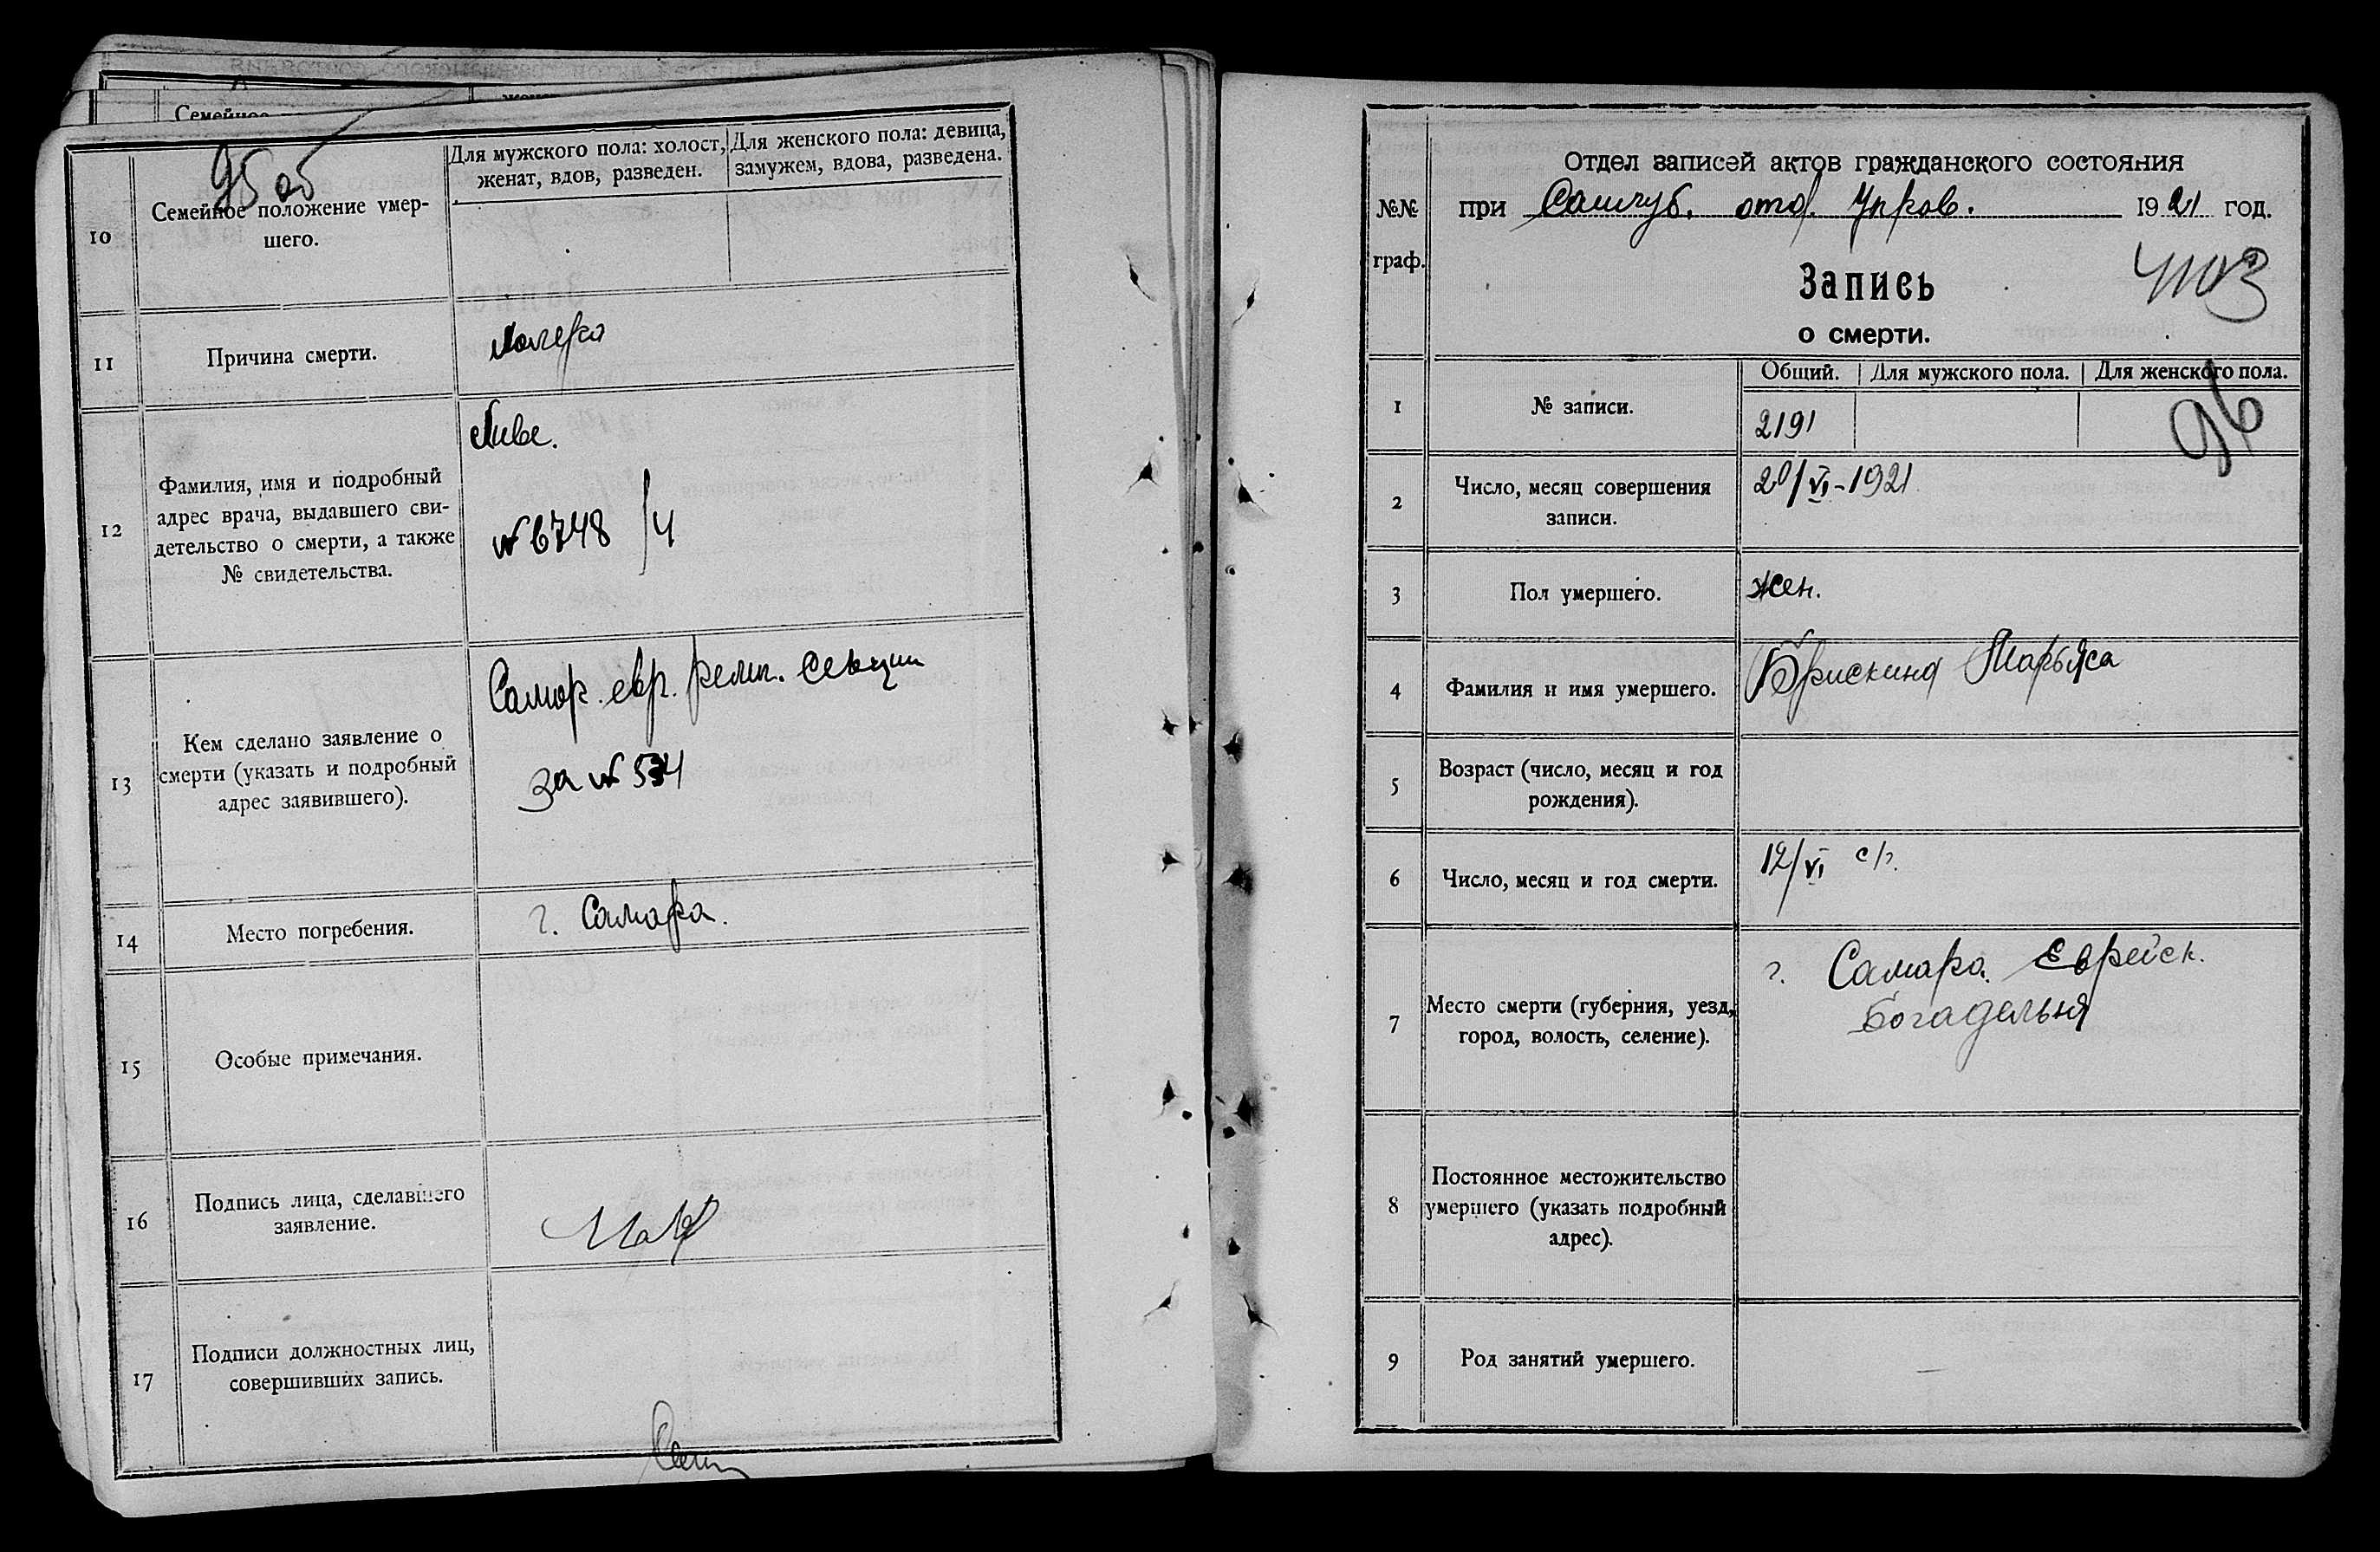 95 об
10
Семейное положение умер-
шего.
Для мужского пола: холост,
женат, вдов, разведен.
Для женского пола: девица,
замужем, вдова, разведена.
11
Причина смерти.
Холера
12
Фамилия, имя и подробный
адрес врача, выдавшего сви-
детельство о смерти, а также
№ свидетельства.
№ 6748/4
13
Кем сделано заявление о
смерти (указать и подробный
адрес заявившего).
Самар. евр. религ. секции
за № 534
14
Место погребения.
г. Самара.
15
Особые примечания.
16
Подпись лица, сделавшего
заявление.
17
Подписи должностных лиц,
совершивших запись.
№№
граф.
Отдел записей актов гражданского состояния
при Самгуб. отд. Управ. 1921 год.
Запись
о смерти.
4103
96
1
№ записи.
Общий. Для мужского пола. Для женского пола.
2191
2
Число, месяц совершения
записи.
20/VI-1921
3
Пол умершего.
жен.
4
Фамилия и имя умершего.
Брискина Марьяса
5
Возраст (число, месяц и год
рождения).
6
Число, месяц и год смерти.
12/VI с/г.
7
Место смерти (губерния, уезд,
город, волость, селение).
г. Самара. Еврейск.
Богадельня
8
Постоянное местожительство
умершего (указать подробный
адрес).
9
Род занятий умершего.